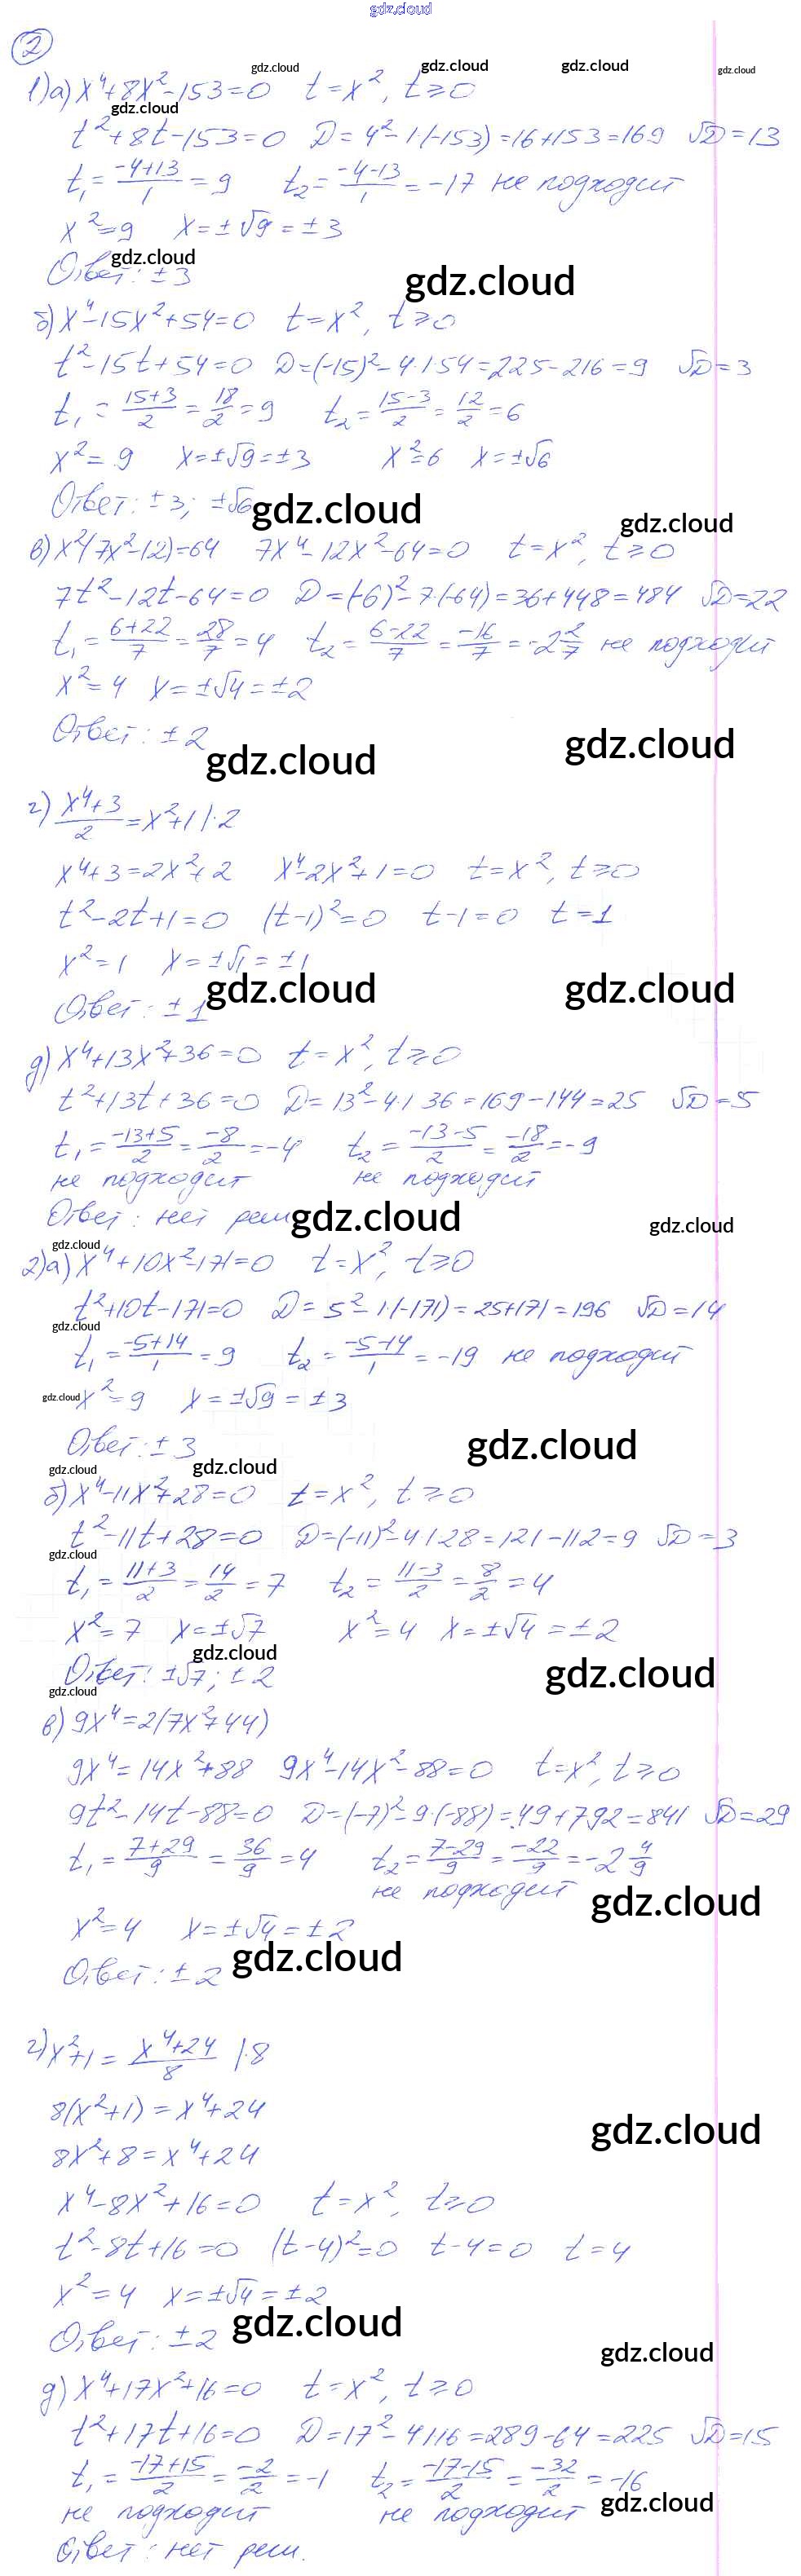 gdz.cloud
2
gdz.cloud gdz.cloud gdz.cloud gdz.cloud
1)а) x⁴+8x²-153=0 t=x², t≥0
gdz.cloud
t²+8t-153=0 D=4²-1·(-153)=16+153=169 √D=13
t₁=(-4+13)/1=9 t₂=(-4-13)/1=-17 не подходит
x²=9 x=±√9=±3
gdz.cloud
Ответ: ±3 gdz.cloud
б) x⁴-15x²+54=0 t=x², t≥0
t²-15t+54=0 D=(-15)²-4·1·54=225-216=9 √D=3
t₁=(15+3)/2=18/2=9 t₂=(15-3)/2=12/2=6
x²=9 x=±√9=±3 x²=6 x=±√6
Ответ: ±3; ±√6 gdz.cloud gdz.cloud
в) x²(7x²-12)=64 7x⁴-12x²-64=0 t=x², t≥0
7t²-12t-64=0 D=(-6)²-7·(-64)=36+448=484 √D=22
t₁=(6+22)/7=28/7=4 t₂=(6-22)/7=-16/7=-2 2/7 не подходит
x²=4 x=±√4=±2
Ответ: ±2 gdz.cloud gdz.cloud
г) (x⁴+3)/2=x²+1 |·2
x⁴+3=2x²+2 x⁴-2x²+1=0 t=x², t≥0
t²-2t+1=0 (t-1)²=0 t-1=0 t=1
x²=1 x=±√1=±1
Ответ: ±1 gdz.cloud gdz.cloud
д) x⁴+13x²+36=0 t=x², t≥0
t²+13t+36=0 D=13²-4·1·36=169-144=25 √D=5
t₁=(-13+5)/2=-8/2=-4 t₂=(-13-5)/2=-18/2=-9
не подходит не подходит
Ответ: нет реш. gdz.cloud gdz.cloud
gdz.cloud
2)а) x⁴+10x²-171=0 t=x², t≥0
t²+10t-171=0 D=5²-1·(-171)=25+171=196 √D=14
gdz.cloud
t₁=(-5+14)/1=9 t₂=(-5-14)/1=-19 не подходит
gdz.cloud x²=9 x=±√9=±3
Ответ: ±3 gdz.cloud
gdz.cloud gdz.cloud
б) x⁴-11x²+28=0 t=x², t≥0
t²-11t+28=0 D=(-11)²-4·1·28=121-112=9 √D=3
gdz.cloud
t₁=(11+3)/2=14/2=7 t₂=(11-3)/2=8/2=4
x²=7 x=±√7 x²=4 x=±√4=±2
gdz.cloud
Ответ: ±√7; ±2 gdz.cloud
gdz.cloud
в) 9x⁴=2(7x²+44)
9x⁴=14x²+88 9x⁴-14x²-88=0 t=x², t≥0
9t²-14t-88=0 D=(-7)²-9·(-88)=49+792=841 √D=29
t₁=(7+29)/9=36/9=4 t₂=(7-29)/9=-22/9=-2 4/9
не подходит gdz.cloud
x²=4 x=±√4=±2
Ответ: ±2 gdz.cloud
г) x²+1=(x⁴+24)/8 |·8
8(x²+1)=x⁴+24
gdz.cloud
8x²+8=x⁴+24
x⁴-8x²+16=0 t=x², t≥0
t²-8t+16=0 (t-4)²=0 t-4=0 t=4
x²=4 x=±√4=±2
Ответ: ±2 gdz.cloud gdz.cloud
д) x⁴+17x²+16=0 t=x², t≥0
t²+17t+16=0 D=17²-4·1·16=289-64=225 √D=15
t₁=(-17+15)/2=-2/2=-1 t₂=(-17-15)/2=-32/2=-16
не подходит не подходит gdz.cloud
Ответ: нет реш.